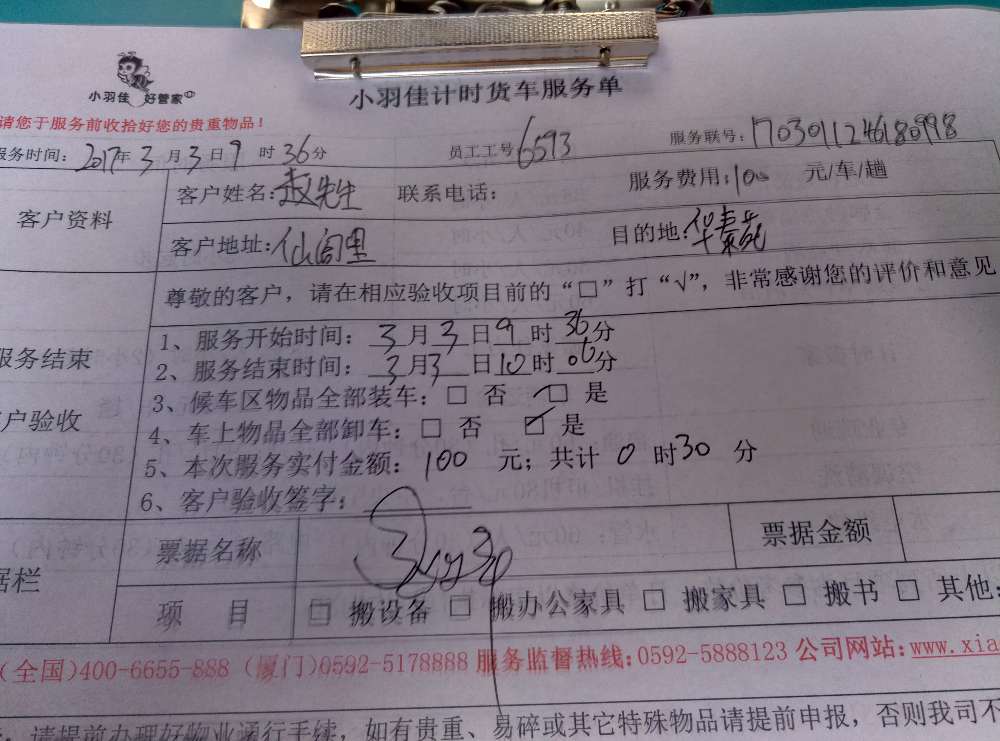 小羽佳 好管家
小羽佳计时货车服务单
请您于服务前收拾好您的贵重物品！
服务时间：2017年3月3日9时36分 员工工号6593 服务联号：1703011246180998
客户资料
客户姓名：赵先生 联系电话： 服务费用：100 元/车/趟
客户地址：仙阁里 目的地：华泰苑
尊敬的客户，请在相应验收项目前的“□”打“√”，非常感谢您的评价和意见
服务结束
客户验收
1、服务开始时间：3月3日9时36分
2、服务结束时间：3月3日10时06分
3、候车区物品全部装车：□ 否 □ 是
4、车上物品全部卸车：□ 否 ☑ 是
5、本次服务实付金额：100 元；共计 0 时30 分
6、客户验收签字：
据栏
票据名称 票据金额
项 目 □ 搬设备 □ 搬办公家具 □ 搬家具 □ 搬书 □ 其他：
(全国)400-6655-888 (厦门)0592-5178888 服务监督热线：0592-5888123 公司网站：www.xia
：请提前办理好物业通行手续，如有贵重、易碎或其它特殊物品请提前申报，否则我司不